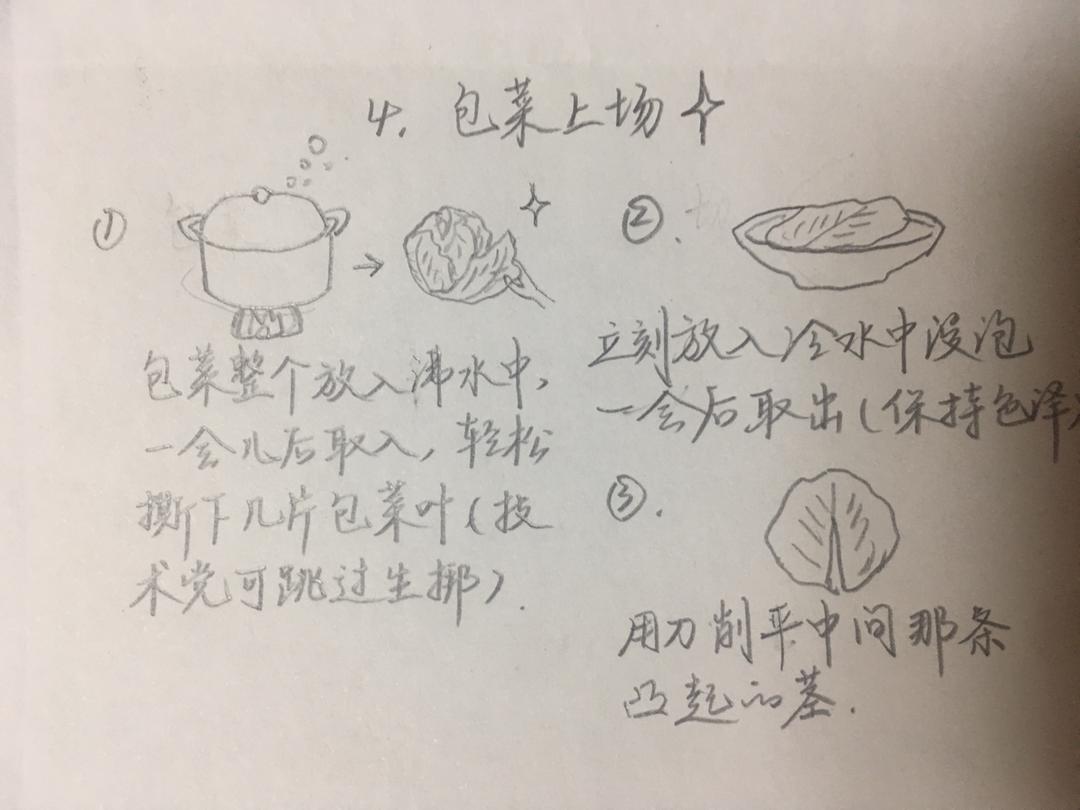 4. 包菜上场
①
包菜整个放入沸水中,
一会儿后取入, 轻松
撕下几片包菜叶(技
术党可跳过生掰).
②.
立刻放入冷水中浸泡
一会后取出(保持色泽)
③.
用刀削平中间那条
凸起的茎.